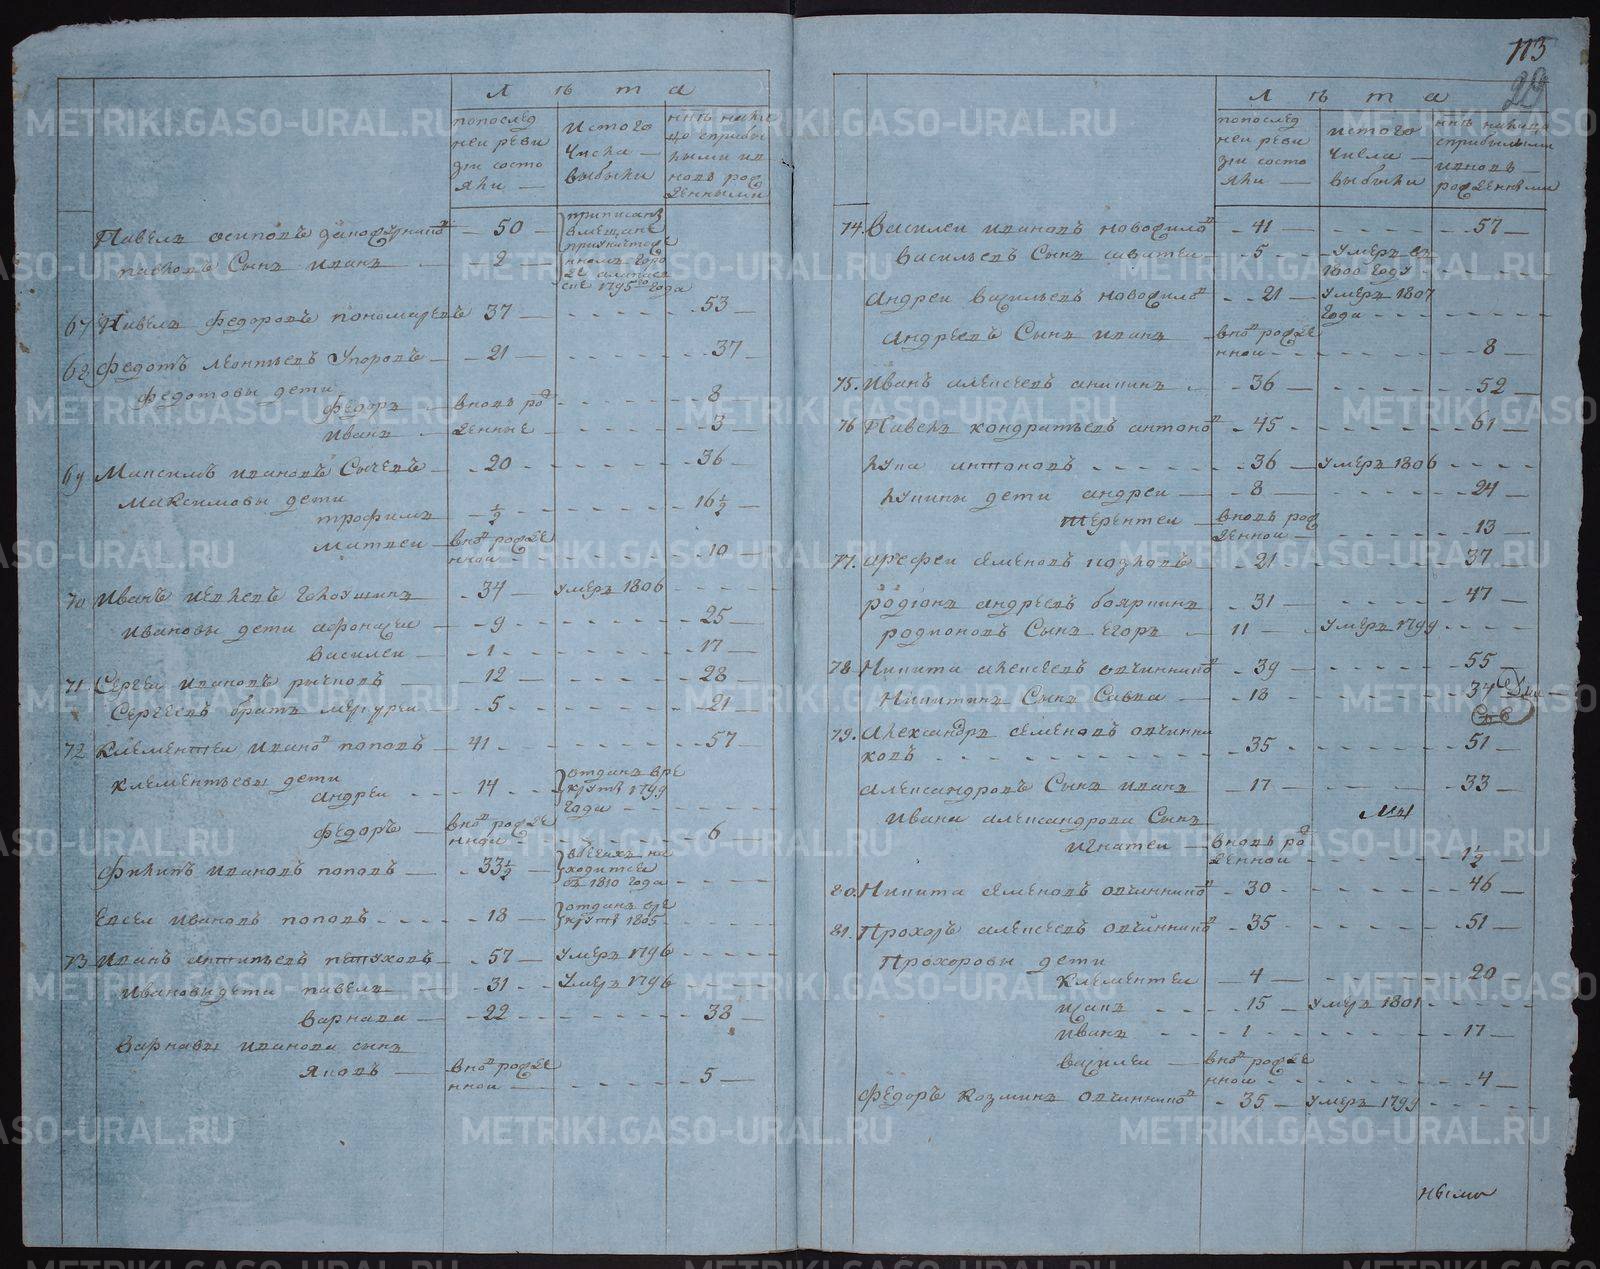 113
29
Лѣта
попослед
неи реви
зіи состо
яли
истого
числа
выбыли
нѣ нали
цо сприбы
лыми и в
новь рож
денными
Павелъ осиповъ
50
приписанъ
в мещане
павловъ Сынъ иванъ
2
1795 го года
67 Павелъ федоровъ пономаревъ
37
53
68 Федотъ леонтьевъ Упоровъ
21
37
федотовы дети
федоръ
вновь рож
8
иванъ
денные
3
69 Максимъ ивановъ Сычевъ
20
36
максимовы дети
трофимъ
½
16½
матвеи
вновь рожде
нной
10
70 Иванъ
34
умеръ 1806
ивановы дети афонасеи
9
25
василеи
1
17
71 Сергеи ивановъ рычковъ
12
28
Сергеевъ братъ меркуреи
5
21
72 Клементеи иванов поповъ
41
57
клементьевы дети
андреи
14
отданъ вре
круты 1799
года
федоръ
вновь рожде
нной
6
Филипъ ивановъ поповъ
33½
вбегахъ на
ходитца
съ 1810 года
Евсеи ивановъ поповъ
18
отданъ вре
круты 1805
73 Иванъ антипьевъ петуховъ
57
умеръ 1796
ивановы дети павелъ
31
умеръ 1796
варнава
22
38
варнавы иванова сынъ
яковъ
вновь рожде
нной
5
Лѣта
попослед
неи реви
зіи состо
яли
истого
числа
выбыли
нѣ налицо
сприбылыми
ивновь
рожденными
74. Василеи ивановъ новосилов
41
57
васильевъ Сынъ саватеи
5
Умеръ въ
1800 году
андреи васильевъ новосилов
21
умеръ 1807
года
андреевъ Сынъ иванъ
вновь рожде
нной
8
75. Иванъ алексеевъ аникинъ
36
52
76 Павелъ кондратьевъ антонов
45
61
лука антоновъ
36
умеръ 1806
лукины дети андреи
8
24
терентеи
вновь рож
денной
13
77. арефеи семеновъ козловъ
21
37
родіонъ андреевъ бояркинъ
31
47
родионовъ Сынъ Егоръ
11
умеръ 1799
78. Никита алексеевъ овчинников
39
55
Никитинъ Сынъ Савва
18
34
79. Александръ семеновъ овчинни
ковъ
35
51
александровъ Сынъ иванъ
17
33
ивана александрова Сынъ
игнатеи
вновь ро
жденной
1½
80. Никита семеновъ овчинников
30
46
81. Прохоръ алексеевъ овчинников
35
51
Прохоровы дети
клементеи
4
20
15
умеръ 1801
иванъ
1
17
василеи
вновь рожде
нной
4
федоръ козминъ овчинников
35
умеръ 1799